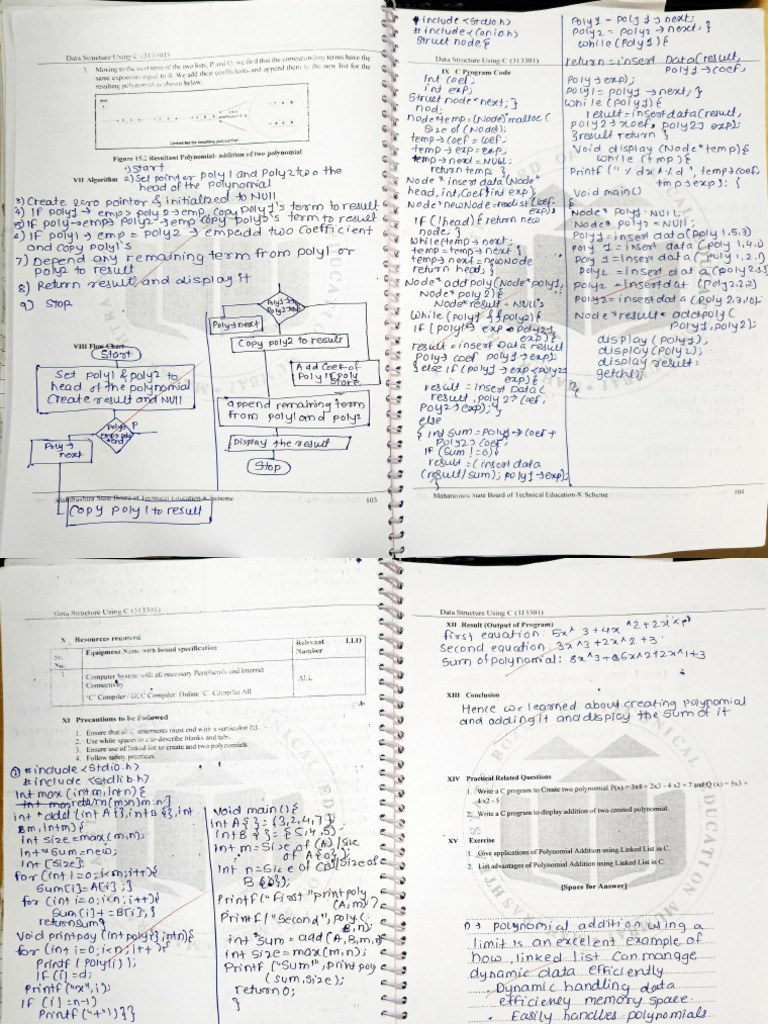 Data Structure Using C (313301)
7. Moving to the next term of the two lists, P and Q, we find that the corresponding terms have the
same exponents equal to 0. We add their coefficients and append them to the new list for the
resulting polynomial as shown below:
Linked list for resulting polynomial
Figure 15.2 Resultant Polynomial- addition of two polynomial
1) Start
VII Algorithm 2) Set pointer poly 1 and Poly2 two the
head of the polynomial
3) Create zero pointer & initialized to NUll
4) If Poly1 → emp > poly2 → emp, copy Poly1's term to result
5) If poly→emp> Poly2→emp copy Poly2's term to result
6) If poly1 → emp = poly2 → emp add two Coefficient
and copy poly1's
7) Depend any remaining term from poly1 or
poly2 to result
8) Return result and display it
9) Stop
VIII Flow Chart
Start
Set poly1 & poly2 to
head of the polynomial
Create result and NUll
Poly→
next
Copy Poly 1 to result
Poly→next
Copy poly2 to result
Add Coef of
Poly 1 & Poly
Store
append remaining term
from poly1 and poly2
Display the result
Stop
Maharashtra State Board of Technical Education-K Scheme
103
# include <Stdio.h>
# include <Conio.h>
Struct node {
Data Structure Using C (313301)
IX C Program Code
Int coef;
int exp;
Struct node * next; }
nod;
node * temp = (Node) malloc (
Size of (Node);
temp → coef = coef;
temp → exp = exp;
temp → next = NUll;
return temp; }
Node * insert data (Node *
head, int, Coef, int exp) {
Node * newNode =
exp);
If (!head) { return new
node; }
while (temp → next;
temp = temp → next }
temp → next = newNode
return head; }
Node * add poly (Node * poly1,
Node * poly2) {
Node * result = NULL;
While (poly1 && poly2) {
If (poly1 → exp > poly2→
exp) {
result = insert Data result
Poly→ coef poly1→exp);
} else if (poly1→exp<poly2→
exp) {
result = insert Data (
result, poly2→coef,
Poly2→exp); }
else
{ int sum = poly1→coef +
Poly2→coef;
If (Sum != 0) {
result = (insert data
(result/sum), poly1→exp);
}
Poly1 = poly1→next;
poly2 = poly2→next; }
while (Poly1) {
return = insert Data (result,
Poly1→coef,
Poly→exp);
Poly1 = poly1→next; }
while (poly2) {
result = insertdata (result,
poly2→coef, poly2→exp);
} result return }
Void display (Node * temp) {
while (tmp) {
Printf ("%dx^%d", temp→coef,
tmp→exp); {
Void main()
{
Node * poly1 = NUll;
Node * poly2 = NUll;
Poly1 = insert data (Poly 1,5,3)
Poly 1 = Insert data (poly 1,4,2)
Poly 1 = Insert data (Poly 1,2,1)
Poly2 = Insert data (poly2,3,3)
poly2 = insert dat (Poly2,2,2)
Poly2 = insert data (poly 2,3,0)
Node * result = addpoly (
Poly1, poly2);
display (Poly1);
display (Poly2);
display result;
getch();
Maharashtra State Board of Technical Education-K Scheme
104
Data Structure Using C (313301)
X Resources required
Sr.
No.
Equipment Name with broad specification
Relevant LLO
Number
1
Computer System with all necessary Peripherals and Internet
Connectivity
'C' Compiler / GCC Compiler/ Online 'C' Compiler
ALL
XI Precautions to be Followed
1. Ensure that all C statements must end with a semicolon (;).
2. Use white spaces in c to describe blanks and tabs.
3. Ensure use of linked list to create and two polynomials
4. Follow safety practices.
① # include <Stdio.h>
# include <Stdlib.h>
Int max (int m, int n) {
return (m>n) m:n }
int * add (int A{}, int B{}, int
m, int n) {
int size = max (m, n);
int * Sum = new;
int [Size];
for (int i=0; i<m; i++) {
Sum[i] = A[i]; }
for (int i=0; i<n; i++) {
Sum[i] + = B[i]; }
return sum;
Void printpoy (int poly{}, int n) {
for (int i=0; i<n; i++) {
Printf (Poly[i]);
If (i) = d;
Printf ("x", i);
If (i) = n-1)
Printf ("+") } }
Void main () {
int A{} = {3,2,4,7};
int B{} = {5,4,5};
int m = Size of (A) / Size
of A{0};
Int n = Size of (B) / Size of
B{0};
Printf ("First" printpoly
(A,m);
Printf ("Second", poly (
B,n);
int * Sum = add (A,B,m,n)
int size = max (m,n);
Printf ("Sum", print poly
(sum, size);
return 0;
}
Data Structure Using C (313301)
XII Result (Output of Program)
First equation: 5x^3 + 4x^2 + 2x^1
Second equation: 3x^3 + 2x^2 + 3
Sum of polynomial: 8x^3 + 6x^2 + 2x^1 + 3
XIII Conclusion
Hence we learned about creating polynomial
and adding it and display the sum of it
XIV Practical Related Questions
1. Write a C program to Create two polynomial P(x) = 3x4 + 2x3 - 4 x2 + 7 and Q (x) = 5x3 +
4 x2 - 5
2. Write a C program to display addition of two created polynomial.
XV Exercise
1. Give applications of Polynomial Addition using Linked List in C.
2. List advantages of Polynomial Addition using Linked List in C.
[Space for Answer]
1) → polynomial addition using a
limit is an excellent example of
how linked list can manage
dynamic data efficiently
. Dynamic handling data
efficiency memory space.
. Easily handles polynomials